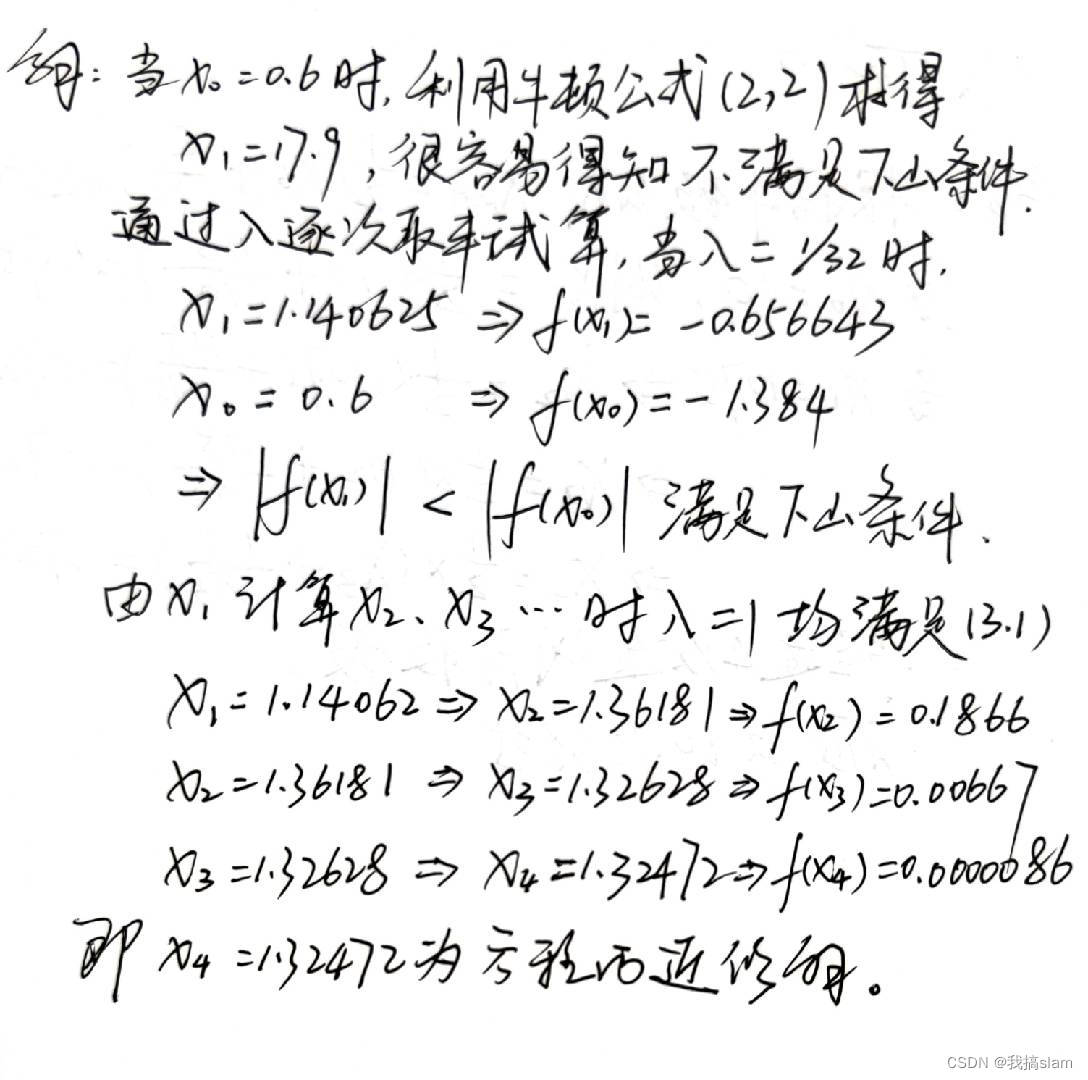 解：当x₀=0.6时，利用牛顿公式(2,2)求得
x₁=17.9，很容易得知不满足下山条件.
通过λ逐次取半试算，当λ=1/32时，
x₁=1.140625 ⇒ f(x₁)= -0.656643
x₀ = 0.6 ⇒ f(x₀)= -1.384
⇒ |f(x₁)| < |f(x₀)| 满足下山条件.
由x₁计算x₂、x₃…时λ=1均满足(3.1)
x₁=1.14062 ⇒ x₂=1.36181 ⇒ f(x₂)=0.1866
x₂=1.36181 ⇒ x₃=1.32628 ⇒ f(x₃)=0.00667
x₃=1.32628 ⇒ x₄=1.32472 ⇒ f(x₄)=0.0000086
即 x₄=1.32472为方程的近似解。
CSDN @我搞slam